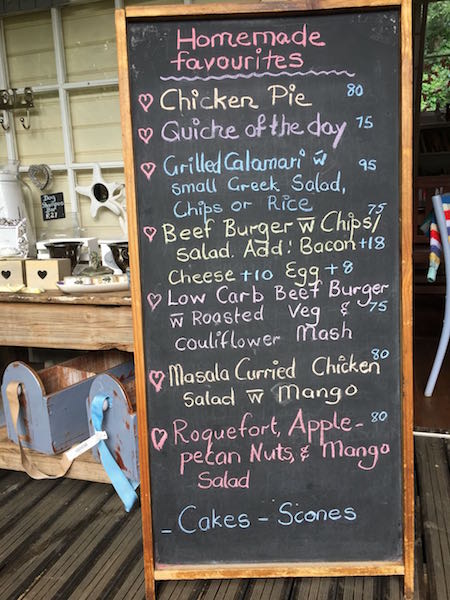 Homemade
favourites
Chicken Pie 80
Quiche of the day 75
Grilled Calamari w̅ 95
small Greek Salad,
Chips or Rice
Beef Burger w̅ Chips/ 75
salad. Add: Bacon +18
Cheese +10 Egg +8
Low Carb Beef Burger
w̅ Roasted Veg & 75
couliflower Mash
Masala Curried Chicken 80
Salad w̅ Mango
Roquefort, Apple- 80
pecan Nuts, & Mango
Salad
- Cakes - Scones
Dog
Shampoo